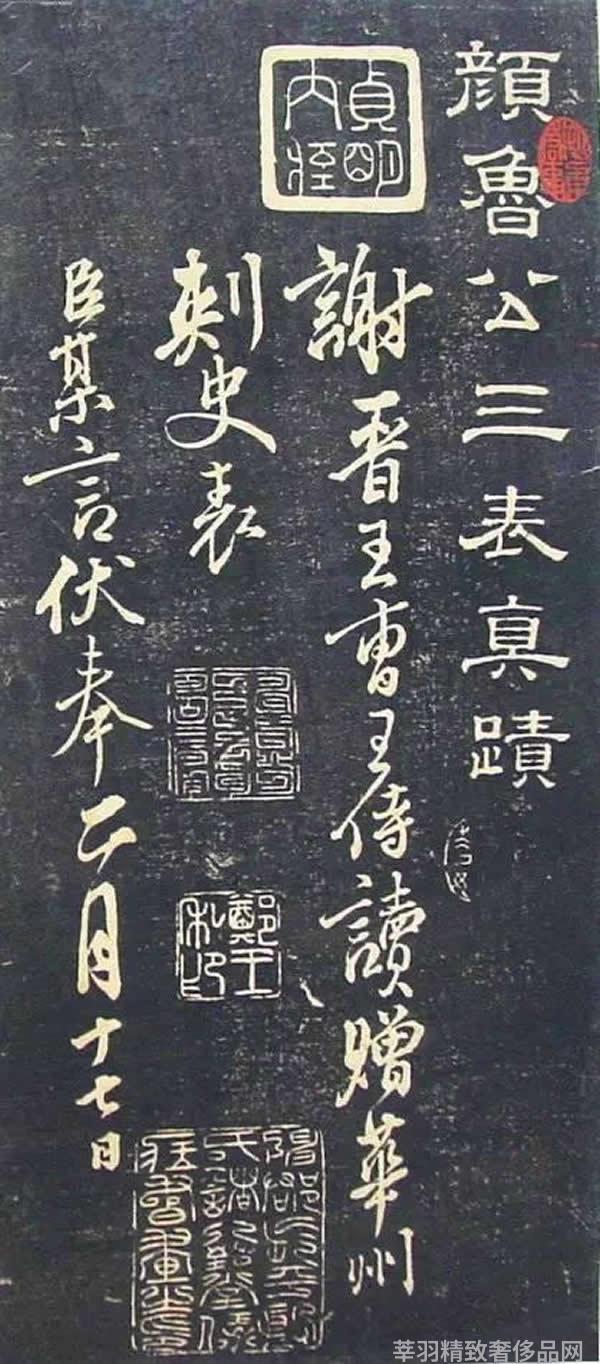 顔魯公三表真蹟
貞明
内𢓡
謝晉王曹王侍讀贈華州
刺史表
臣某言伏奉二月十七日
鄭王
私印
莘羽精致奢侈品网